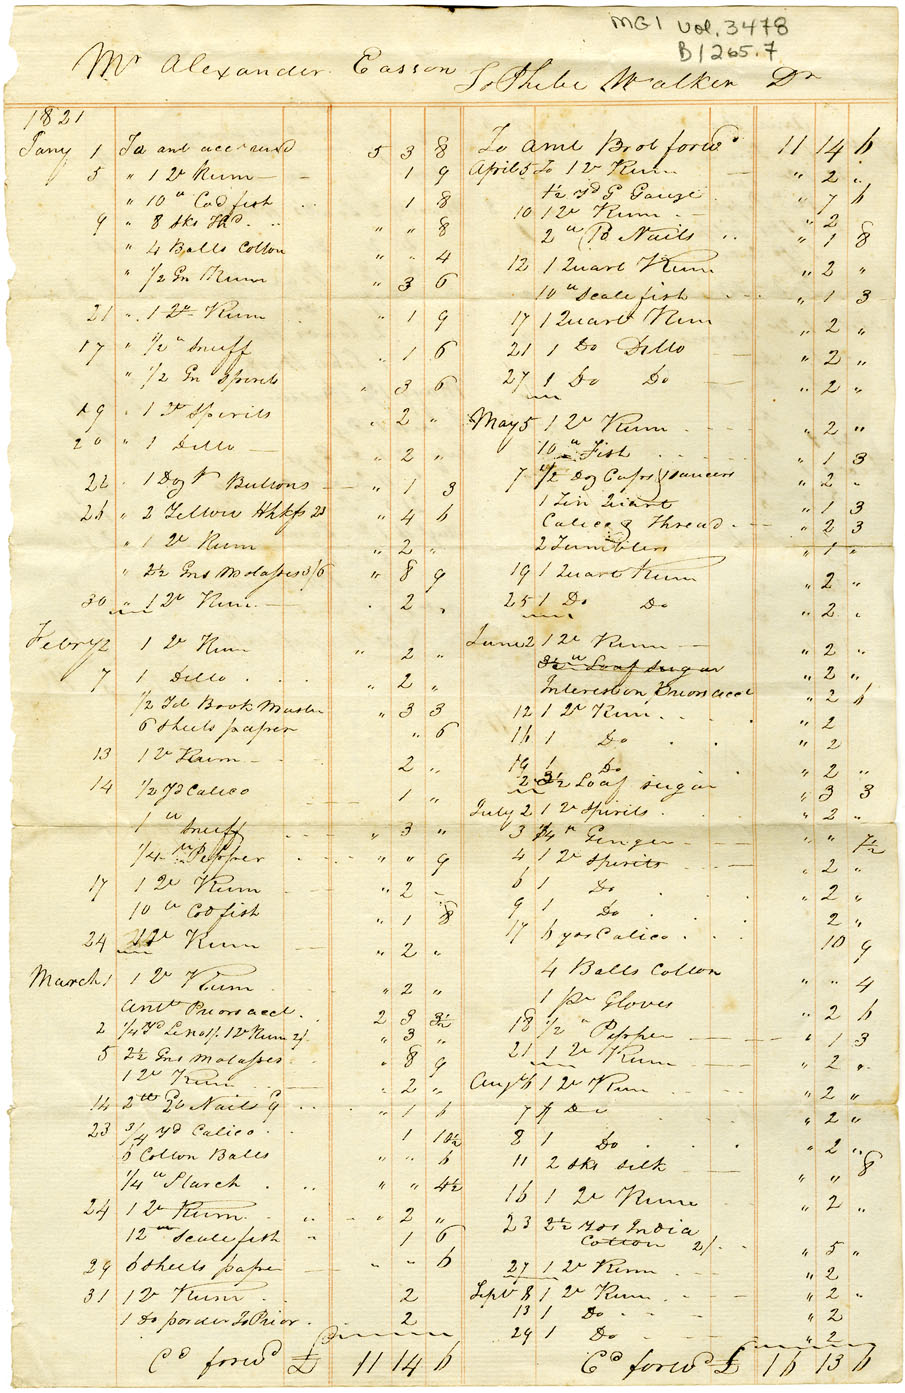 MG1 vol. 3478
B/265.7
Mr Alexander Easson To Phebe Walker Dr
1821
Jany 1 To amt acct 5 3 8
5 " 1 Qr Rum 1 9
" 10 " Codfish 1 8
9 " 8 Sks " " 8
" 4 Balls Cotton " " 4
" 1/2 Gn Rum " 3 6
21 " 1 Qr Rum " 1 9
17 " 1/2 " Snuff " 1 6
" 1/2 Gn Spirits " 3 6
19 " 1 Qr Spirits " 2 "
20 " 1 Ditto " 2 "
22 " 1 Doz Buttons " 1 3
26 " 2 Yellow Hhkfs 23 " 4 6
" 1 Qr Rum " 2 "
" 2½ Gns Molasses 3/6 " 8 9
30 " 1 Qr Rum " 2 "
Febry 2 1 Qr Rum " 2 "
7 1 Ditto " 2 "
1/2 Yd Book Muslin " 3 3
6 Sheets paper " 6
13 1 Qr Rum 2 "
14 1/2 Yd Calico 1 "
1 " Snuff " 3 "
1/4 " Pepper " " 9
17 1 Qr Rum " 2 "
10 " Codfish " 1 8
24 1 Qr Rum " 2 "
March 1 1 Qr Rum " 2 "
Amt Priors acct 2 3 3½
2 1/4 Yd 1 Qr Rum 2/ " 3 "
5 2½ Gns Molasses " 8 9
1 Qr Rum " 2 "
14 2 " Nails 9 " 1 6
23 3/4 Yd Calico 1 1½
6 Cotton Balls " " 6
1/4 " Starch " " 4½
24 1 Qr Rum " 2 "
12 " Scalefish " 1 6
29 6 Sheets paper " " 6
31 1 Qr Rum 2
1 Do per order To Prior 2
Cd forwd £ 11 14 6
To Amt Brot forwd 11 14 6
April 5 To 1 Qr Rum " 2 "
1½ Yd G Gauze " 7 6
10 1 Qr Rum " 2
2 " Nails " 1 8
12 1 Quart Rum " 2 "
10 " Scalefish " 1 3
17 1 Quart Rum " 2 "
21 1 Do Ditto " 2 "
27 1 Do Do " 2 "
May 5 1 Qr Rum " 2 "
10 " Fish " 1 3
7 1/2 Doz Cups & Saucers " 2 "
1 Tin Quart " 1 3
Calico & Thread " 2 3
2 Tumblers " 1 "
19 1 Quart Rum " 2 "
25 1 Do Do " 2 "
June 2 1 Qr Rum " 2 "
3½ " Loaf Sugar " 2 "
Interest on Priors acct " 2 6
12 1 Qr Rum " 2
16 1 Do " 2
19 1 Do " 2 "
2 3½ Loaf Sugar " 3 3
July 2 1 Qr Spirits " 2 "
3 1/4 " Ginger " " 7½
4 1 Qr Spirits " 2 "
6 1 Do " 2 "
9 1 Do 2 "
17 6 yds Calico 10 9
4 Balls Cotton " " 4
1 pr Gloves " 2 6
18 1/2 " Pepper " 1 3
21 1 Qr Rum " 2 "
Augt 6 1 Qr Rum " 2 "
7 1 Do " 2 "
8 1 Do " 2 "
11 2 Sks Silk " " 8
16 1 Qr Rum " 2 "
23 2½ Yds India
Cotton 2/ " 5 "
27 1 Qr Rum " 2
Septr 8 1 Qr Rum " 2 "
13 1 Do " 2
29 1 Do " 2
Cd forwd £ 16 13 6